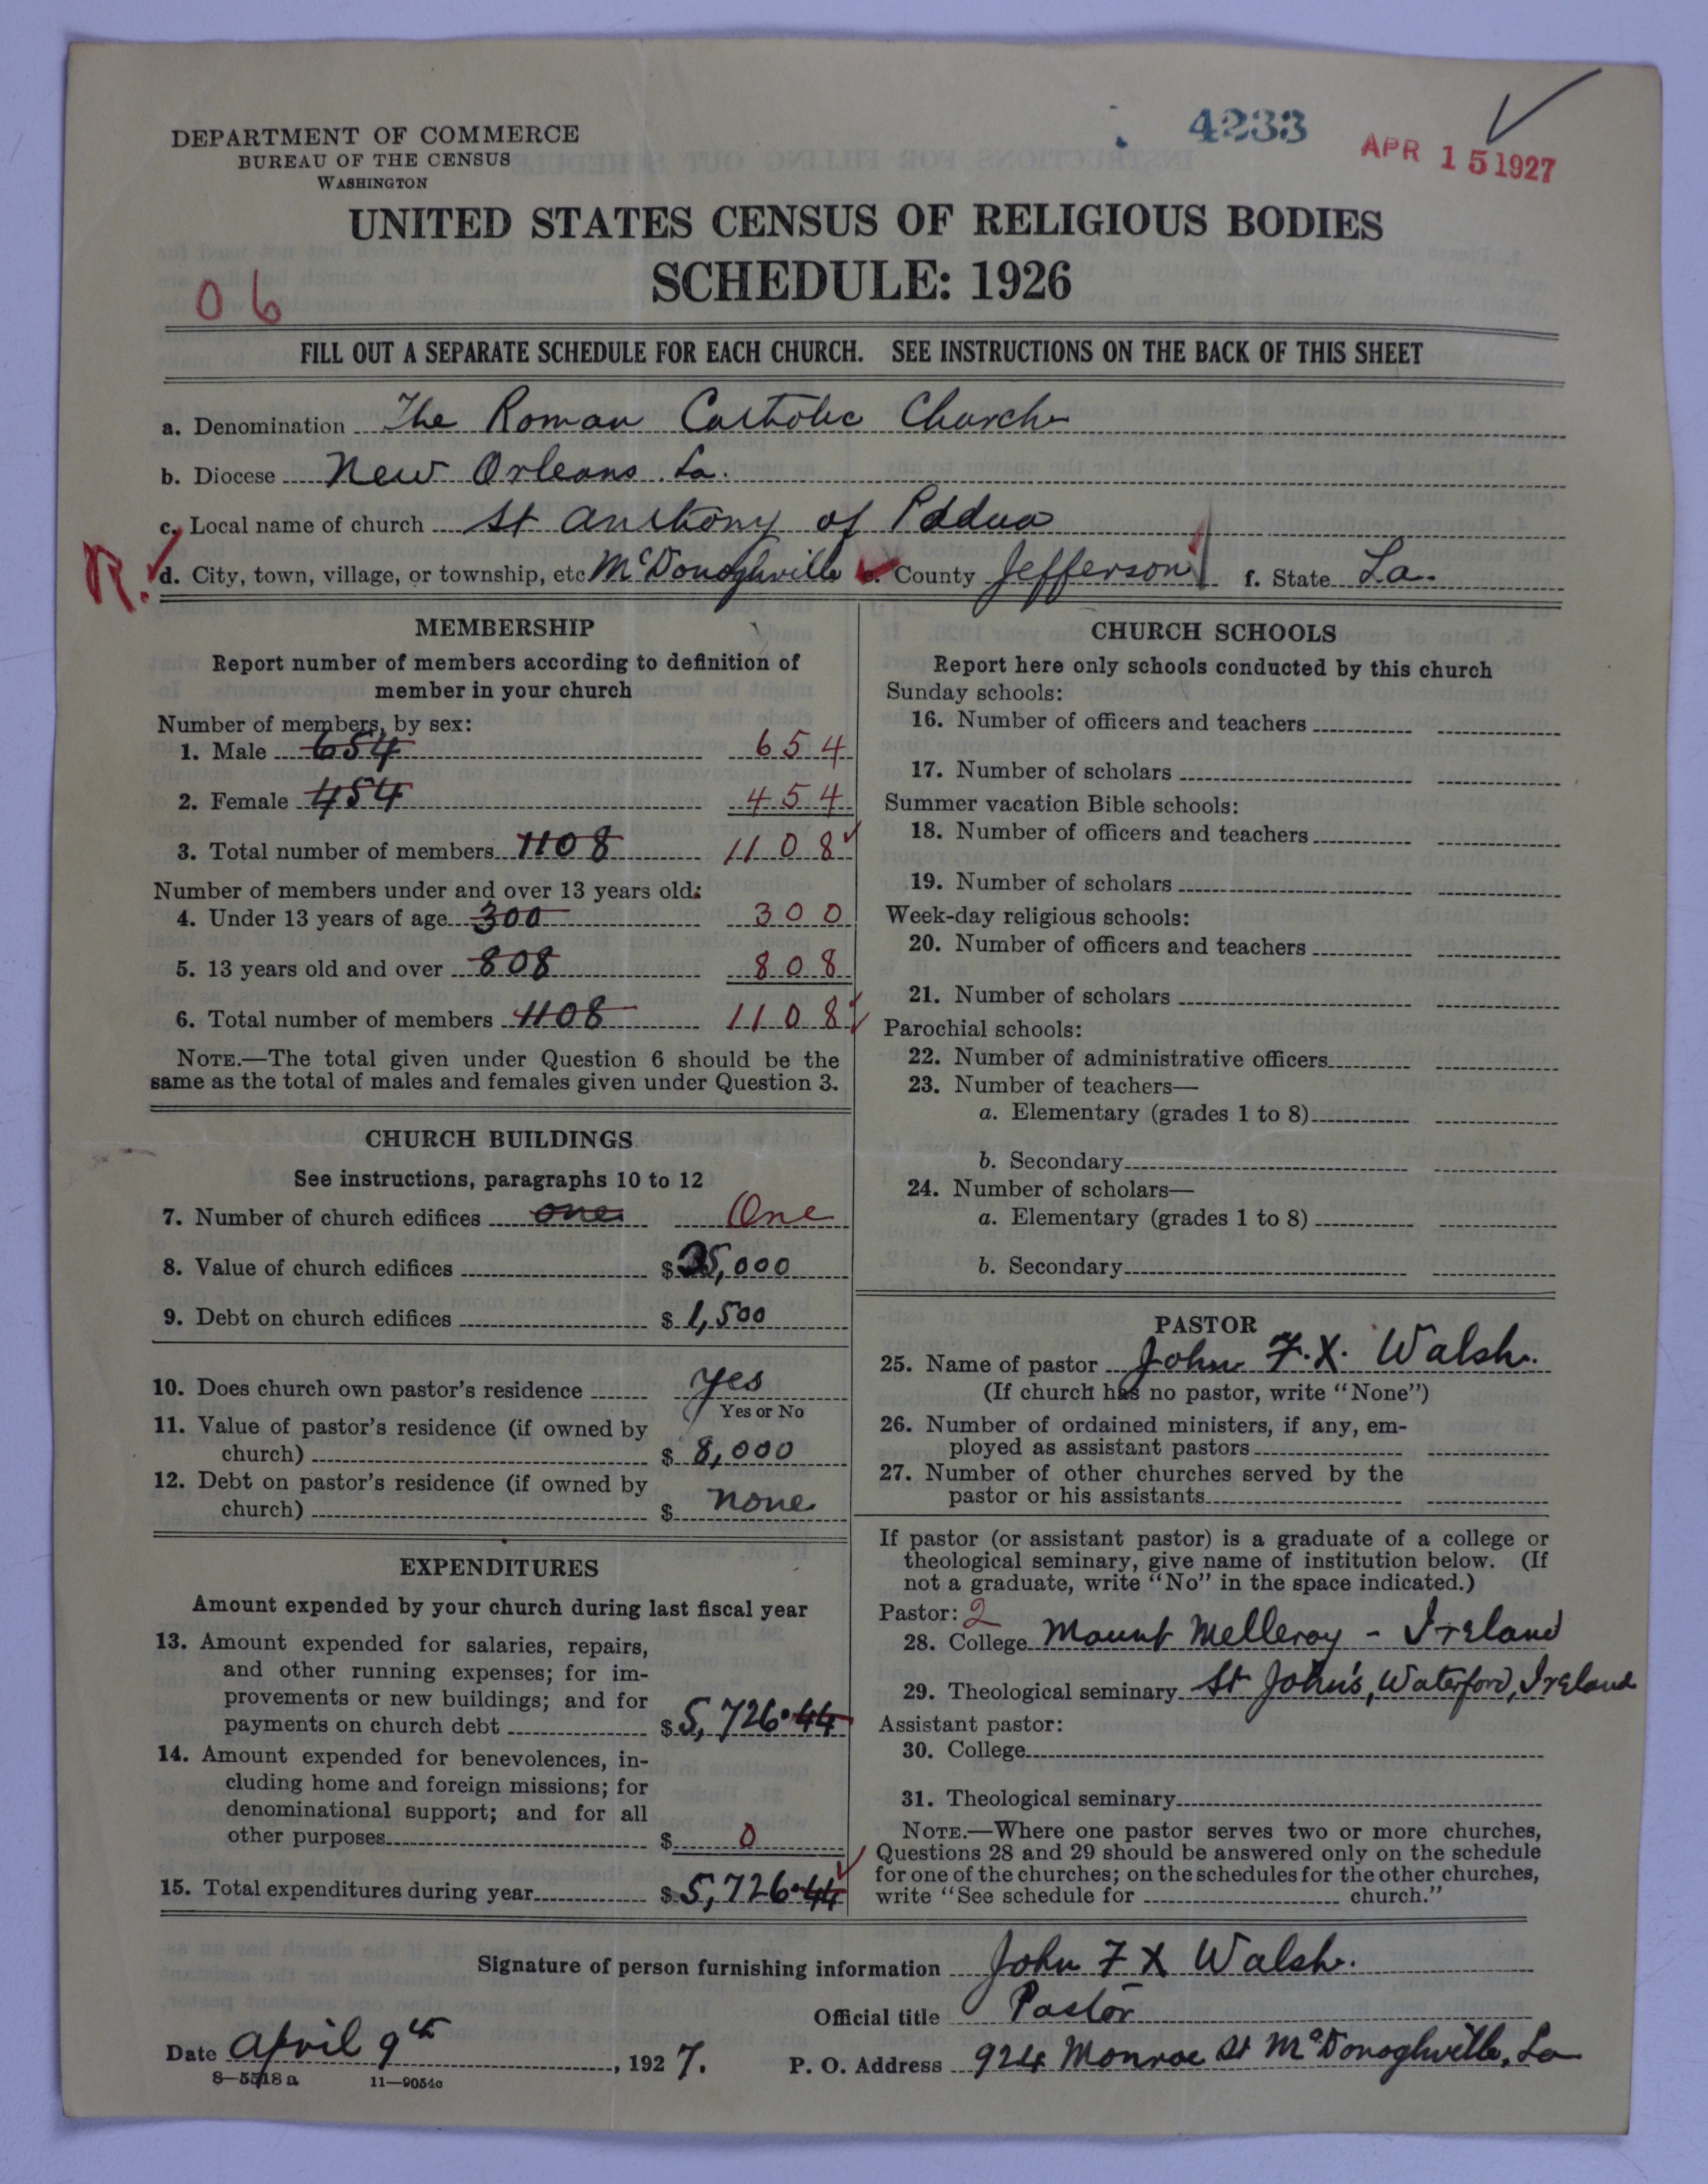 4233
APR 15 1927
DEPARTMENT OF COMMERCE
BUREAU OF THE CENSUS
WASHINGTON
UNITED STATES CENSUS OF RELIGIOUS BODIES
SCHEDULE: 1926
06
FILL OUT A SEPARATE SCHEDULE FOR EACH CHURCH. SEE INSTRUCTIONS ON THE BACK OF THIS SHEET
a. Denomination The Roman Catholic Church
b. Diocese New Orleans. La.
c. Local name of church St Anthony of Padua
R. d. City, town, village, or township, etc McDonoghville e. County Jefferson f. State La.
MEMBERSHIP
Report number of members according to definition of
member in your church
Number of members, by sex:
1. Male 654 654
2. Female 454 454
3. Total number of members 1108 1108
Number of members under and over 13 years old:
4. Under 13 years of age 300 300
5. 13 years old and over 808 808
6. Total number of members 1108 1108
NOTE.—The total given under Question 6 should be the
same as the total of males and females given under Question 3.
CHURCH BUILDINGS
See instructions, paragraphs 10 to 12
7. Number of church edifices one One
8. Value of church edifices $ 35,000
9. Debt on church edifices $ 1,500
10. Does church own pastor's residence yes
Yes or No
11. Value of pastor's residence (if owned by
church) $ 8,000
12. Debt on pastor's residence (if owned by
church) $ none
EXPENDITURES
Amount expended by your church during last fiscal year
13. Amount expended for salaries, repairs,
and other running expenses; for im-
provements or new buildings; and for
payments on church debt $ 5,726.44
14. Amount expended for benevolences, in-
cluding home and foreign missions; for
denominational support; and for all
other purposes $ 0
15. Total expenditures during year $ 5,726.44
CHURCH SCHOOLS
Report here only schools conducted by this church
Sunday schools:
16. Number of officers and teachers
17. Number of scholars
Summer vacation Bible schools:
18. Number of officers and teachers
19. Number of scholars
Week-day religious schools:
20. Number of officers and teachers
21. Number of scholars
Parochial schools:
22. Number of administrative officers
23. Number of teachers—
a. Elementary (grades 1 to 8)
b. Secondary
24. Number of scholars—
a. Elementary (grades 1 to 8)
b. Secondary
PASTOR
25. Name of pastor John F.X. Walsh.
(If church has no pastor, write "None")
26. Number of ordained ministers, if any, em-
ployed as assistant pastors
27. Number of other churches served by the
pastor or his assistants
If pastor (or assistant pastor) is a graduate of a college or
theological seminary, give name of institution below. (If
not a graduate, write "No" in the space indicated.)
Pastor: 2
28. College Mount Melleray - Ireland
29. Theological seminary St John's, Waterford, Ireland
Assistant pastor:
30. College
31. Theological seminary
NOTE.—Where one pastor serves two or more churches,
Questions 28 and 29 should be answered only on the schedule
for one of the churches; on the schedules for the other churches,
write "See schedule for church."
Signature of person furnishing information John F X Walsh.
Official title Pastor
Date April 9th, 1927. P. O. Address 924 Monroe St McDonoghville, La
8—5518a 11—9054c